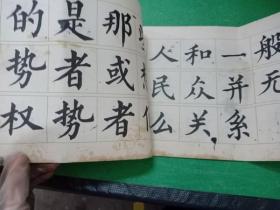 的是那
势者或
权势者
人和一般
民众并无
么关系